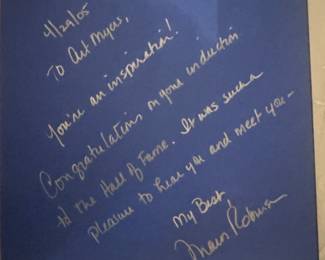 4/29/05
To Art Myers,
You're an inspiration!
Congratulations on your induction
to the Hall of Fame. It was such a
pleasure to hear you and meet you –
My Best,
Robinson